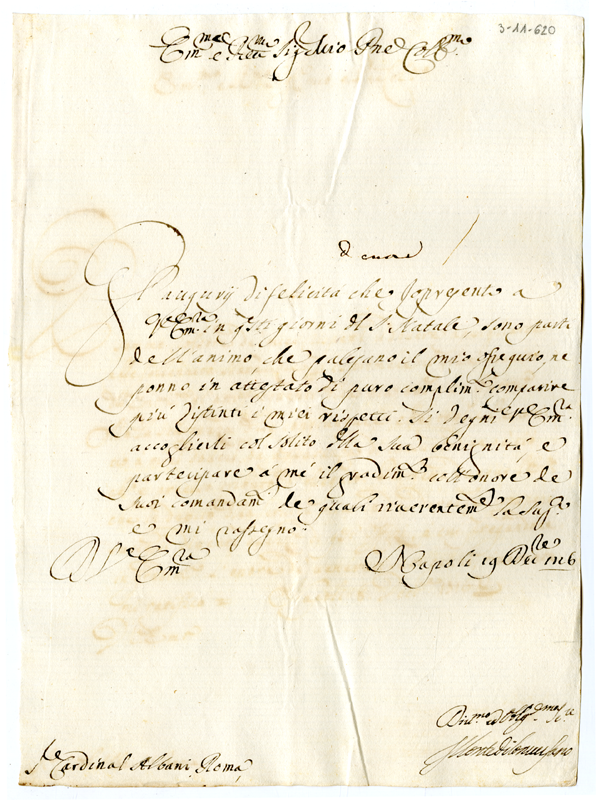 3-11-620
Em.mo e R.mo Sig.r mio P.ne Col.mo
de cuore
Gl'augurij di felicità che Io presento a
V.ra Em.za in q.sti giorni del S. Natale, sono parti
dell'animo, che palesano il mio ossequio, ne
ponno in attestato di puro complim.o comparire
più distinti i miei rispetti. Si degni V.ra Em.za
accoglierli col solito della sua benignità, e
partecipare à me il gradim.o coll'onore de
suoi comandam.ti de quali riverentem.te la sup.co
e mi rassegno.
D. V.ra Em.za
Napoli 19 Dec.bre
Div.mo et Obl.mo
S.r Cardinal Albani, Roma,